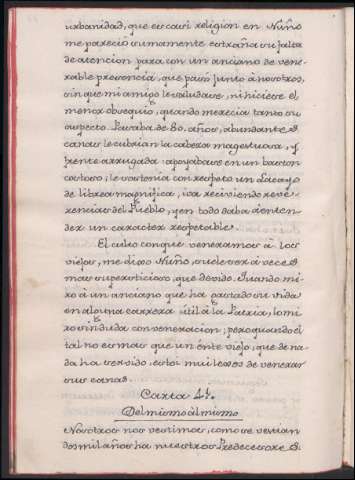 urbanidad, que es casi religion en Nuño
me pareció sumamente extraña su falta
de atencion para con un anciano de vene-
rable presencia, que pasó junto à nosotros,
sin que mi amigo le saludase, ni hiciese el
menor obsequio, quando merecia tanto su
aspecto. Pasaba de 80. años, abundantes
canas le cubrian la cabeza magestuosa, y
frente arrugada: apoyabase en un baston
costoso; le sostenia con respeto un Lacayo
de librea magnifica, iva reciviendo reve-
rencias del Pueblo, y en todo daba à enten-
der un caracter respetable.
El culto con que veneramos à los
viejos, me dijo Nuño, suele ser à veces
mas supersticioso, que devido. Quando mi-
ro à un anciano que ha gastado su vida
en alguna carrera útil à la Patria, lo mi-
ro sin duda con veneracion; pero quando el
tal no es mas que un énte viejo, que de na-
da ha servido, estoi mui lexos de venerar
sus canas.
Carta 4ª.
Del mismo al mismo
Nosotros nos vestimos, como se vestian
dos mil años ha nuestros Predecesores.